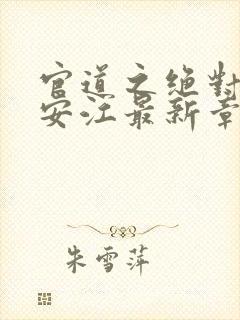 官道之絕對
安江最新章
朱雪萍